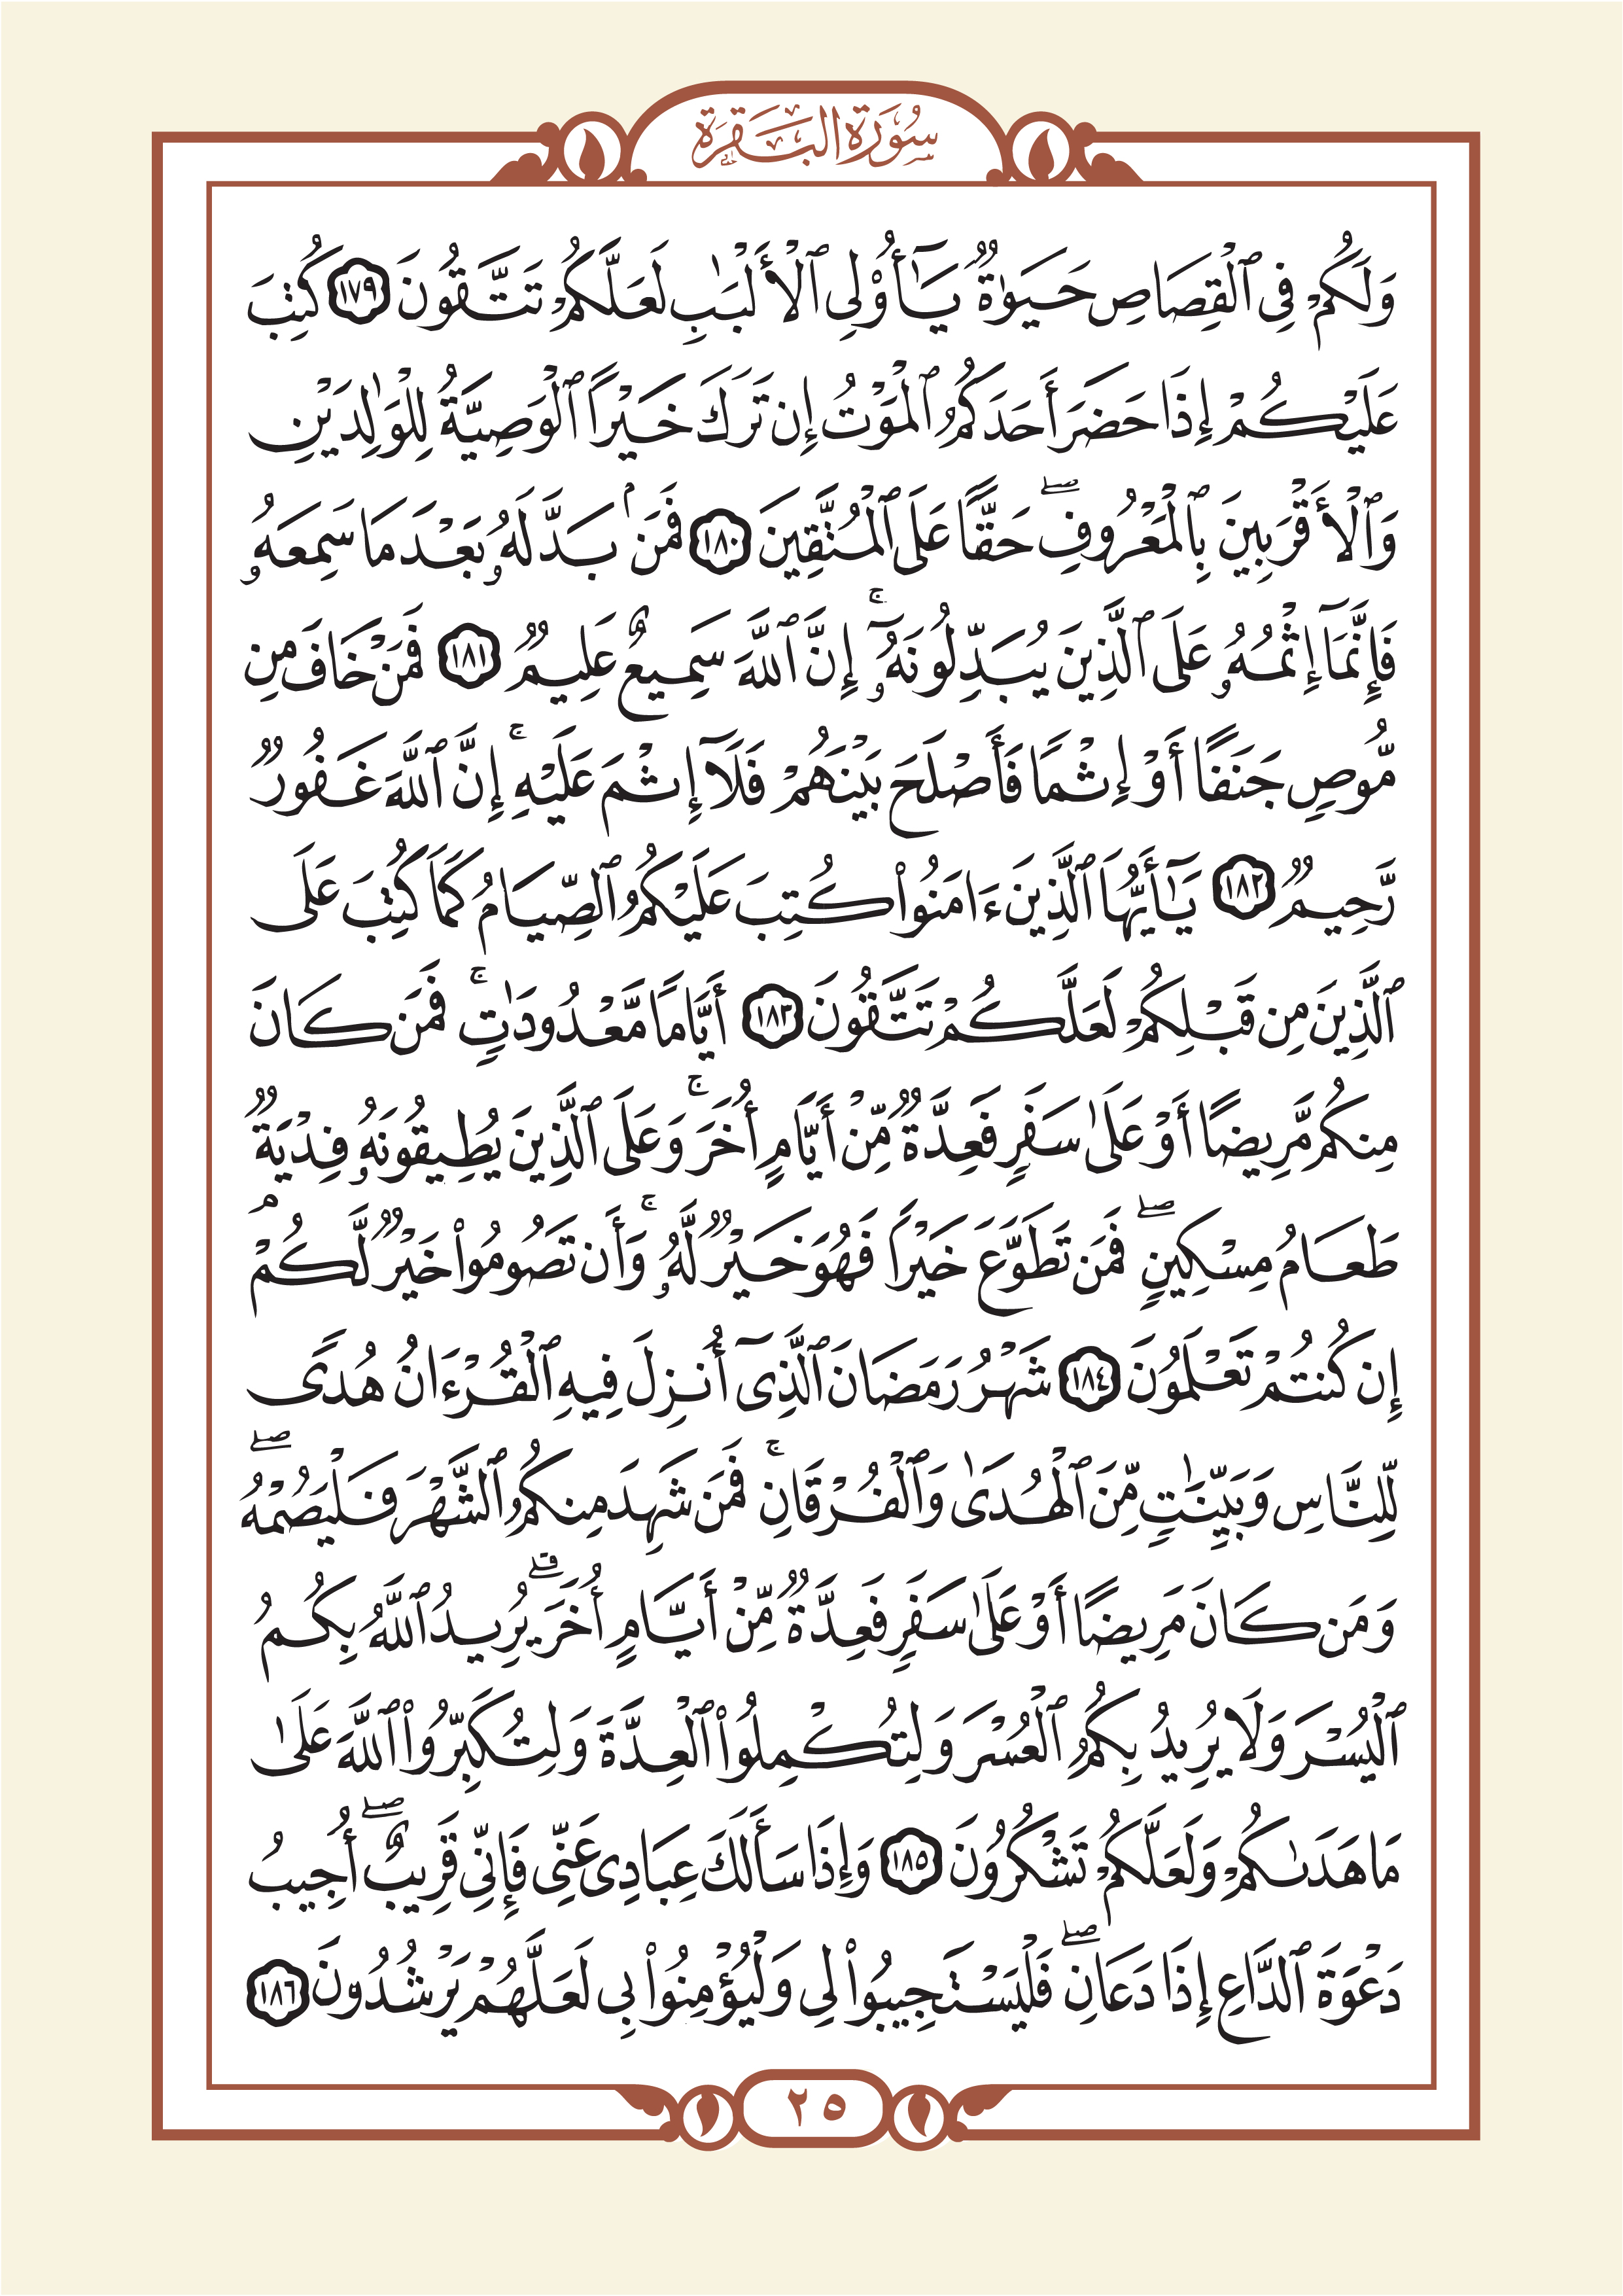 سُورَةُ الْبَقَرَةِ
وَلَكُمْ فِى ٱلْقِصَاصِ حَيَوٰةٌ يَٰٓأُو۟لِى ٱلْأَلْبَٰبِ لَعَلَّكُمْ تَتَّقُونَ ١٧٩ كُتِبَ
عَلَيْكُمْ إِذَا حَضَرَ أَحَدَكُمُ ٱلْمَوْتُ إِن تَرَكَ خَيْرًا ٱلْوَصِيَّةُ لِلْوَٰلِدَيْنِ
وَٱلْأَقْرَبِينَ بِٱلْمَعْرُوفِ ۖ حَقًّا عَلَى ٱلْمُتَّقِينَ ١٨٠ فَمَنۢ بَدَّلَهُۥ بَعْدَ مَا سَمِعَهُۥ
فَإِنَّمَآ إِثْمُهُۥ عَلَى ٱلَّذِينَ يُبَدِّلُونَهُۥٓ ۚ إِنَّ ٱللَّهَ سَمِيعٌ عَلِيمٌ ١٨١ فَمَنْ خَافَ مِن
مُّوصٍ جَنَفًا أَوْ إِثْمًا فَأَصْلَحَ بَيْنَهُمْ فَلَآ إِثْمَ عَلَيْهِ ۚ إِنَّ ٱللَّهَ غَفُورٌ
رَّحِيمٌ ١٨٢ يَٰٓأَيُّهَا ٱلَّذِينَ ءَامَنُوا۟ كُتِبَ عَلَيْكُمُ ٱلصِّيَامُ كَمَا كُتِبَ عَلَى
ٱلَّذِينَ مِن قَبْلِكُمْ لَعَلَّكُمْ تَتَّقُونَ ١٨٣ أَيَّامًا مَّعْدُودَٰتٍ ۚ فَمَن كَانَ
مِنكُم مَّرِيضًا أَوْ عَلَىٰ سَفَرٍ فَعِدَّةٌ مِّنْ أَيَّامٍ أُخَرَ ۚ وَعَلَى ٱلَّذِينَ يُطِيقُونَهُۥ فِدْيَةٌ
طَعَامُ مِسْكِينٍ ۖ فَمَن تَطَوَّعَ خَيْرًا فَهُوَ خَيْرٌ لَّهُۥ ۚ وَأَن تَصُومُوا۟ خَيْرٌ لَّكُمْ ۖ
إِن كُنتُمْ تَعْلَمُونَ ١٨٤ شَهْرُ رَمَضَانَ ٱلَّذِىٓ أُنزِلَ فِيهِ ٱلْقُرْءَانُ هُدًى
لِّلنَّاسِ وَبَيِّنَٰتٍ مِّنَ ٱلْهُدَىٰ وَٱلْفُرْقَانِ ۚ فَمَن شَهِدَ مِنكُمُ ٱلشَّهْرَ فَلْيَصُمْهُ ۖ
وَمَن كَانَ مَرِيضًا أَوْ عَلَىٰ سَفَرٍ فَعِدَّةٌ مِّنْ أَيَّامٍ أُخَرَ ۗ يُرِيدُ ٱللَّهُ بِكُمُ
ٱلْيُسْرَ وَلَا يُرِيدُ بِكُمُ ٱلْعُسْرَ وَلِتُكْمِلُوا۟ ٱلْعِدَّةَ وَلِتُكَبِّرُوا۟ ٱللَّهَ عَلَىٰ
مَا هَدَىٰكُمْ وَلَعَلَّكُمْ تَشْكُرُونَ ١٨٥ وَإِذَا سَأَلَكَ عِبَادِى عَنِّى فَإِنِّى قَرِيبٌ ۖ أُجِيبُ
دَعْوَةَ ٱلدَّاعِ إِذَا دَعَانِ ۖ فَلْيَسْتَجِيبُوا۟ لِى وَلْيُؤْمِنُوا۟ بِى لَعَلَّهُمْ يَرْشُدُونَ ١٨٦
٢٥